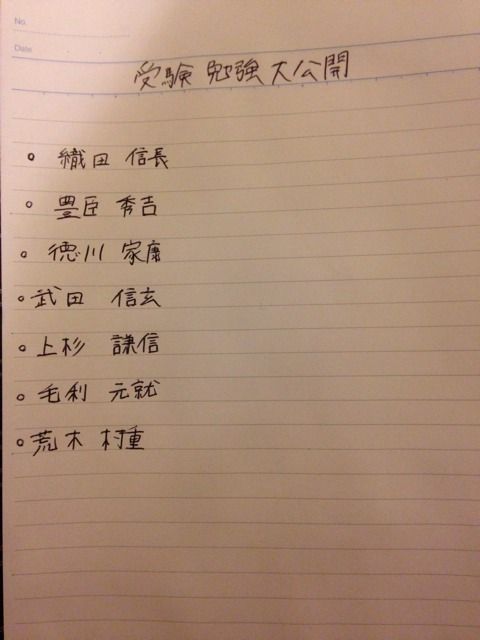 No.
Date
受験勉強大公開
○ 織田 信長
○ 豊臣 秀吉
○ 徳川 家康
○ 武田 信玄
○ 上杉 謙信
○ 毛利 元就
○ 荒木 村重